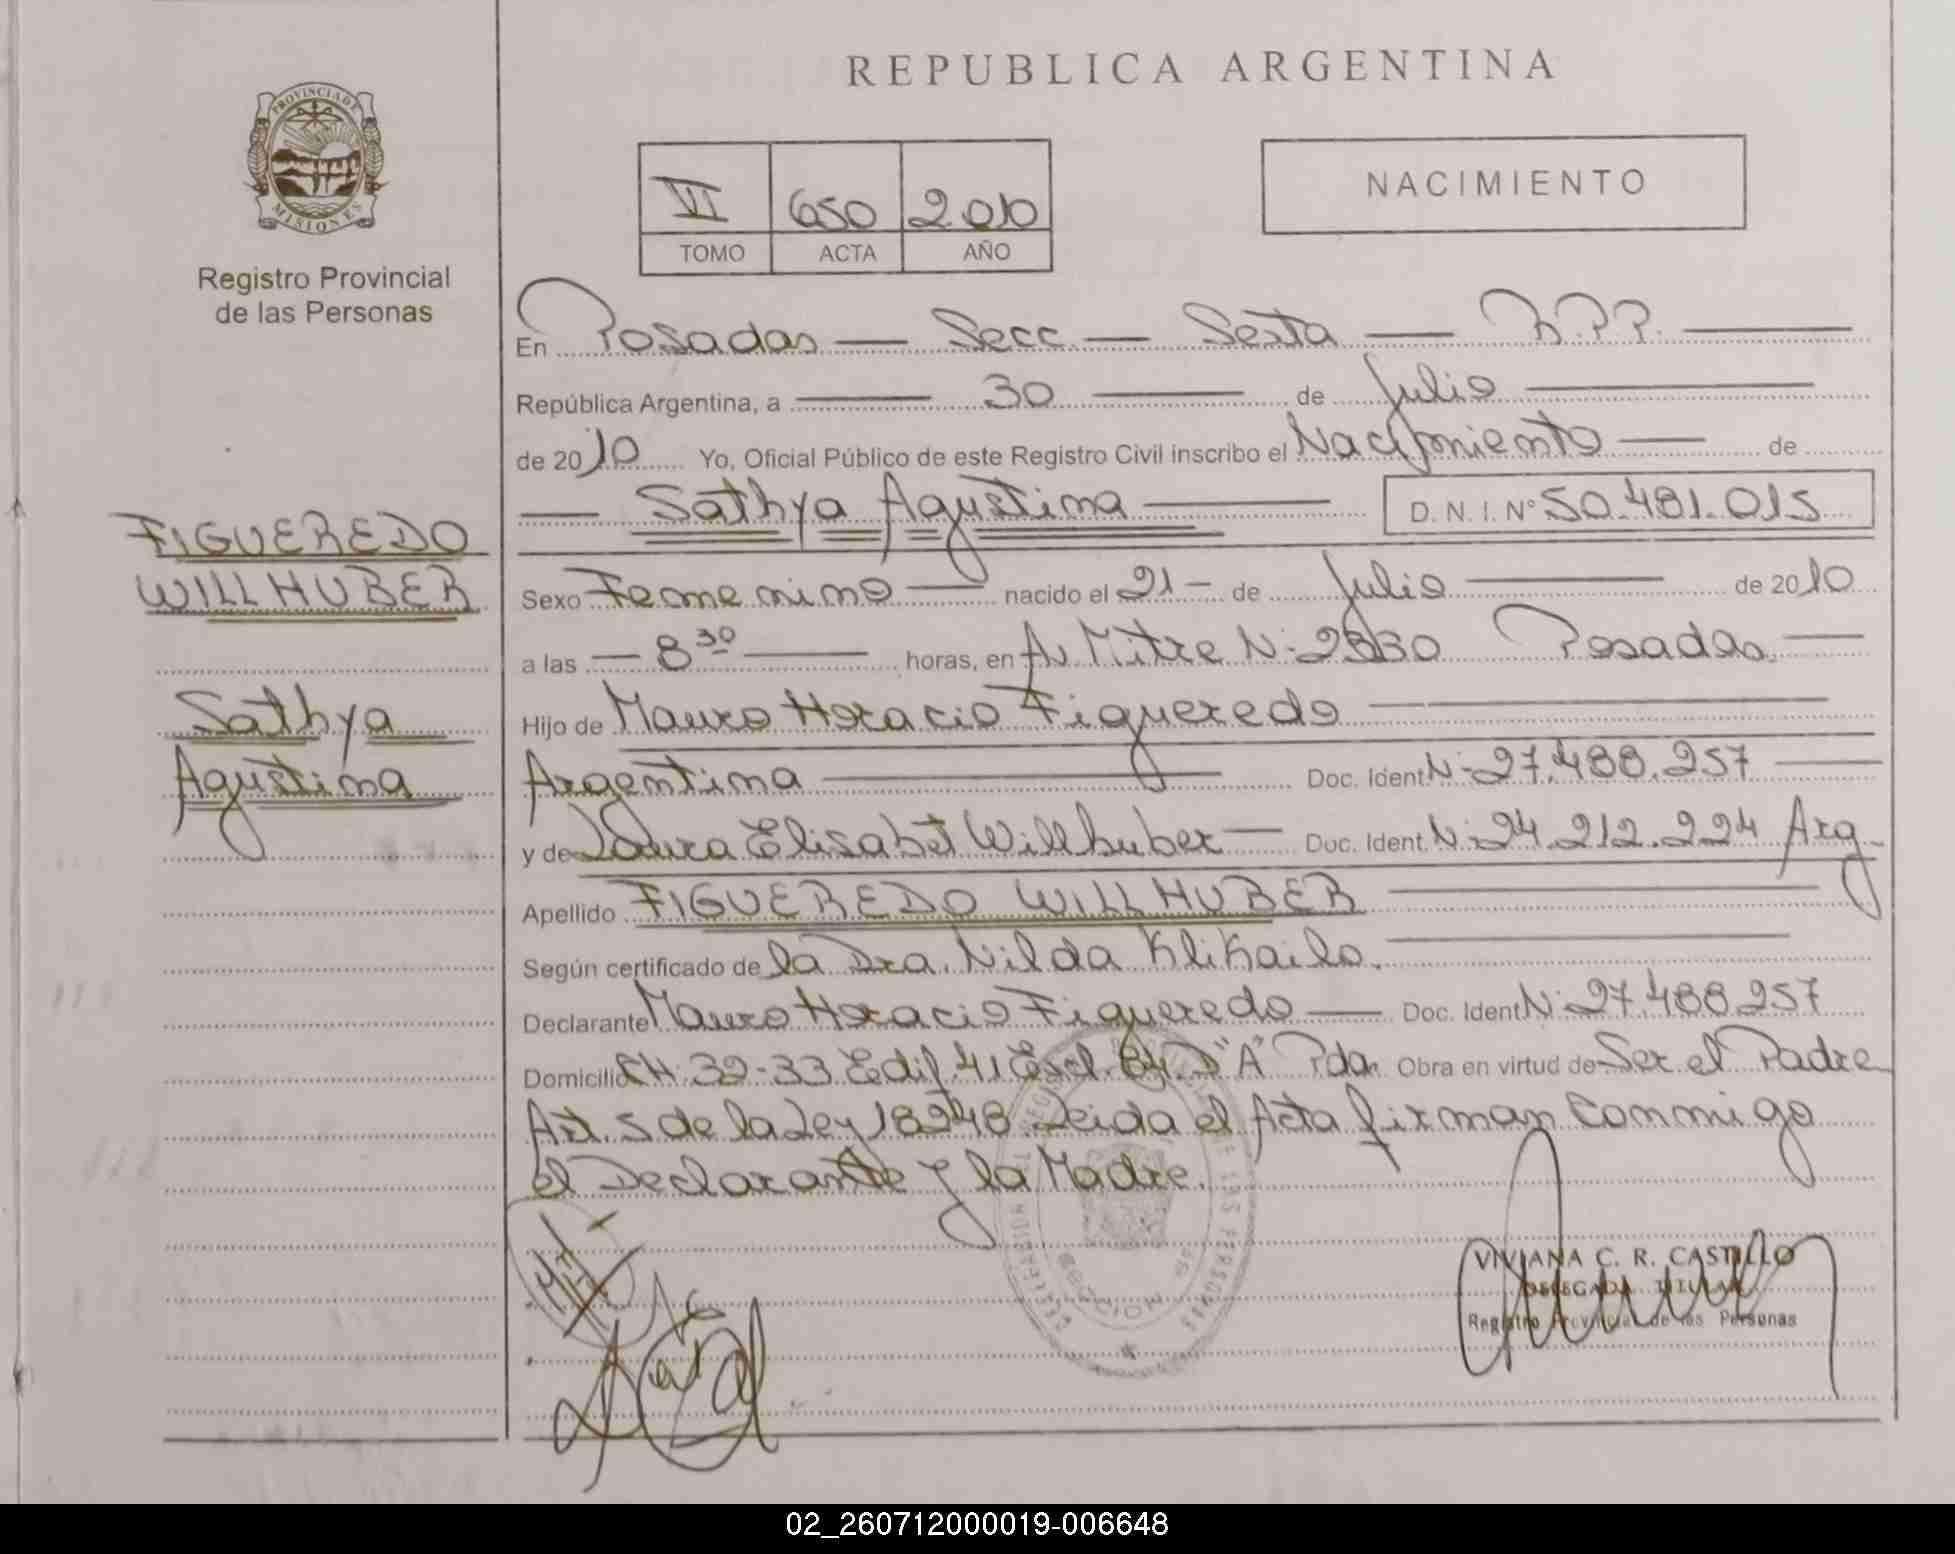 REPUBLICA ARGENTINA
PROVINCIA DE
MISIONES
Registro Provincial
de las Personas
VI 650 2010
TOMO ACTA AÑO
NACIMIENTO
En Posadas — Secc — Sexta — R.P.P. —
República Argentina, a — 30 — de Julio —
de 2010 Yo, Oficial Público de este Registro Civil inscribo el Nacimiento — de
— Sathya Agustina — D.N.I. Nº 50.481.015
FIGUEREDO
WILLHUBER
Sathya
Agustina
Sexo Femenino — nacido el 21 — de Julio — de 2010
a las — 8 30 — horas, en Av Mitre Nº Posadas. —
Hijo de Mauro Horacio Figueredo —
Argentina — Doc. Ident Nº 27.488.257 —
y de Laura Elisabet Willhuber — Doc. Ident. Nº 24.212.224 Arg.
Apellido FIGUEREDO WILLHUBER —
Según certificado de la Dra. Nilda Klikailo. —
Declarante Mauro Horacio Figueredo — Doc. Ident Nº 27.488.257
Domicilio CH. 32-33 Edif. 41 Escl. D "A" Pdas Obra en virtud de Ser el Padre
Art. 5 de la Ley 18248. Leida el Acta firman Conmigo
el Declarante y la Madre.
VIVIANA C. R. CASTILLO
DELEGADA TITULAR
Registro Provincial de las Personas
02_260712000019-006648